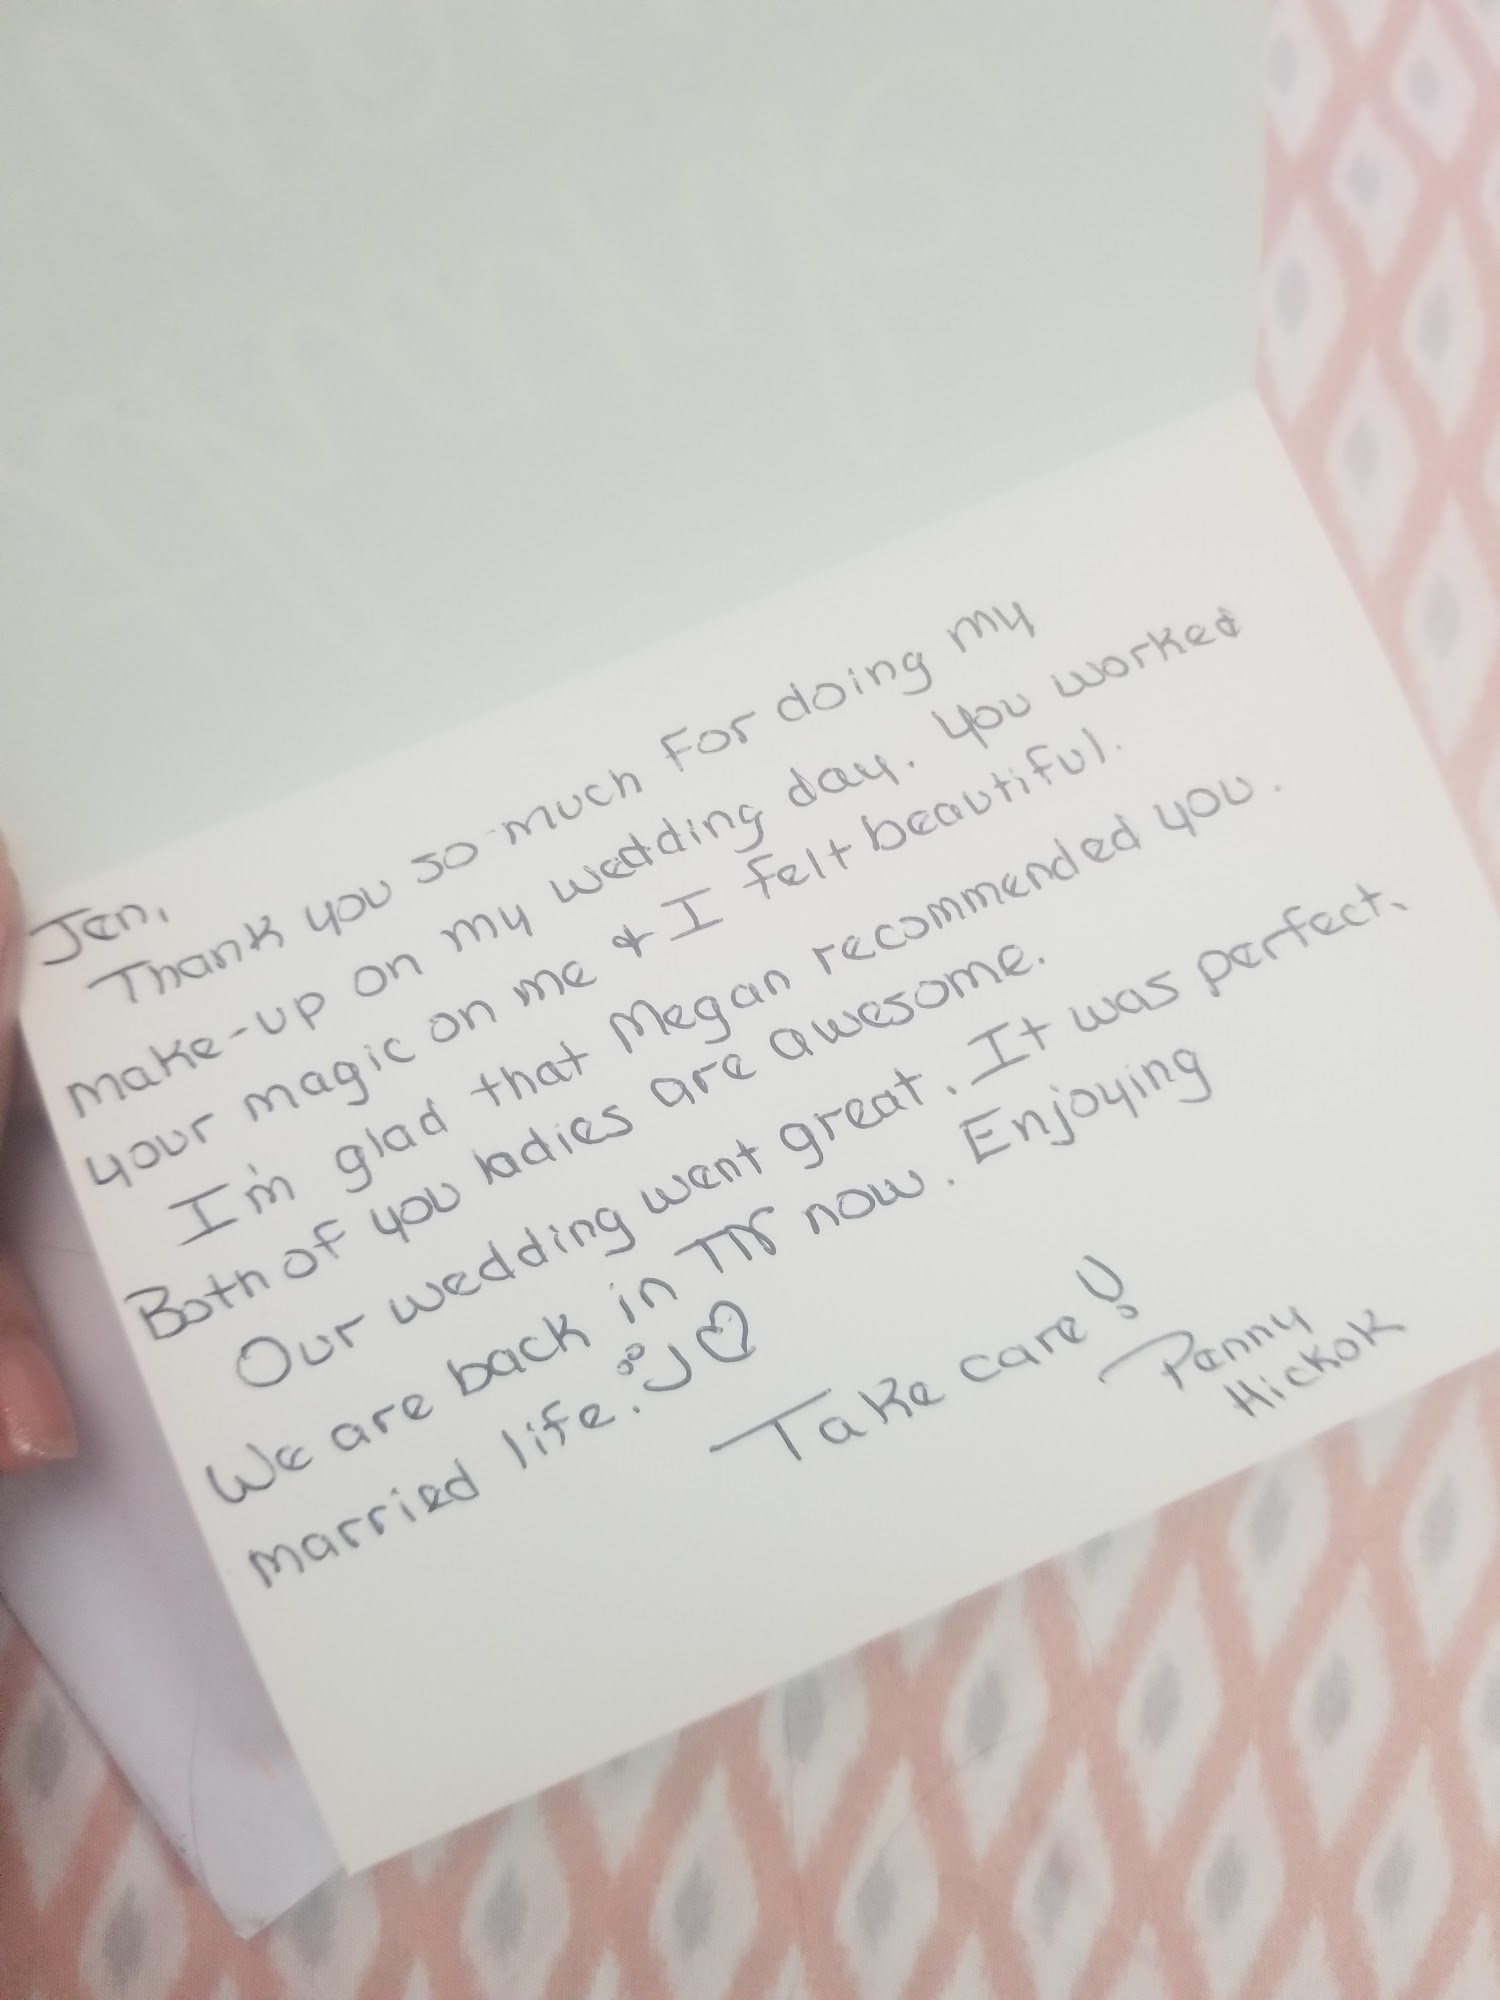 Jen,
Thank you so much for doing my
make-up on my wedding day. You worked
your magic on me & I felt beautiful.
I'm glad that Megan recommended you.
Both of you ladies are awesome.
Our wedding went great. It was perfect.
We are back in TN now. Enjoying
married life. :) ♡
Take care!
Penny
Hickok